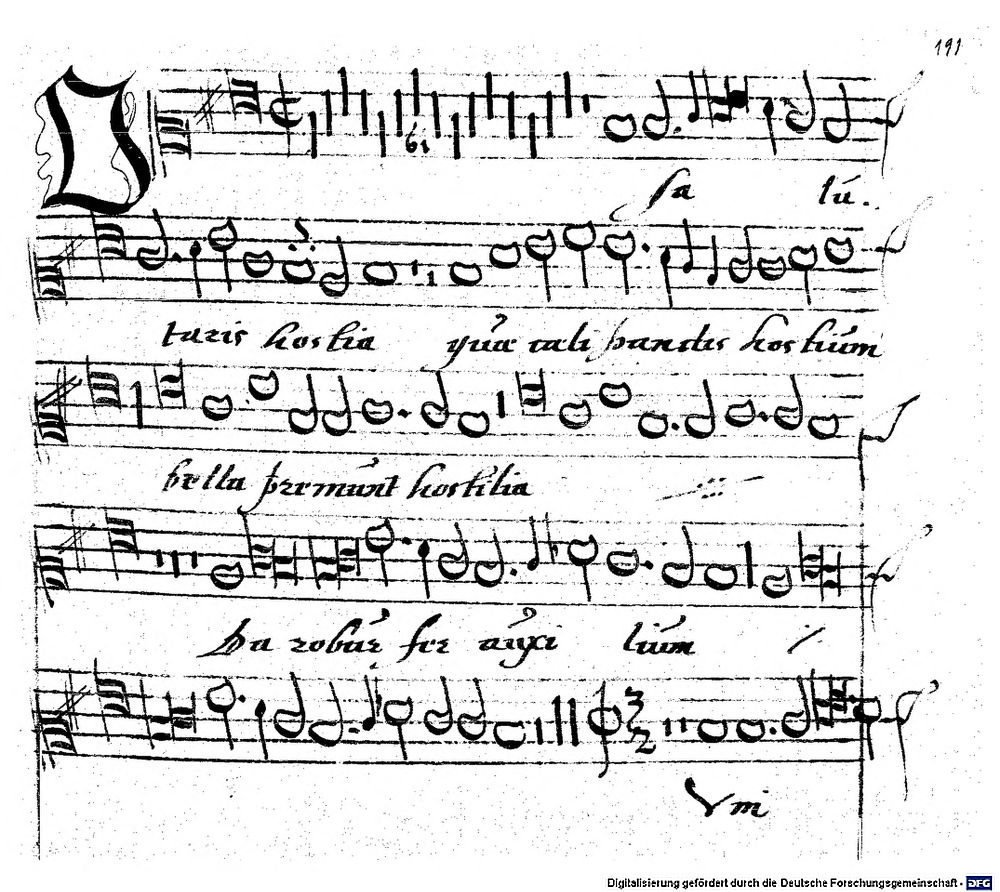 191
O
61
Sa lu.
taris hostia quæ cæli pandis hostium
bella premunt hostilia
Da robur fer auxi lium
Vni
Digitalisierung gefördert durch die Deutsche Forschungsgemeinschaft - DFG